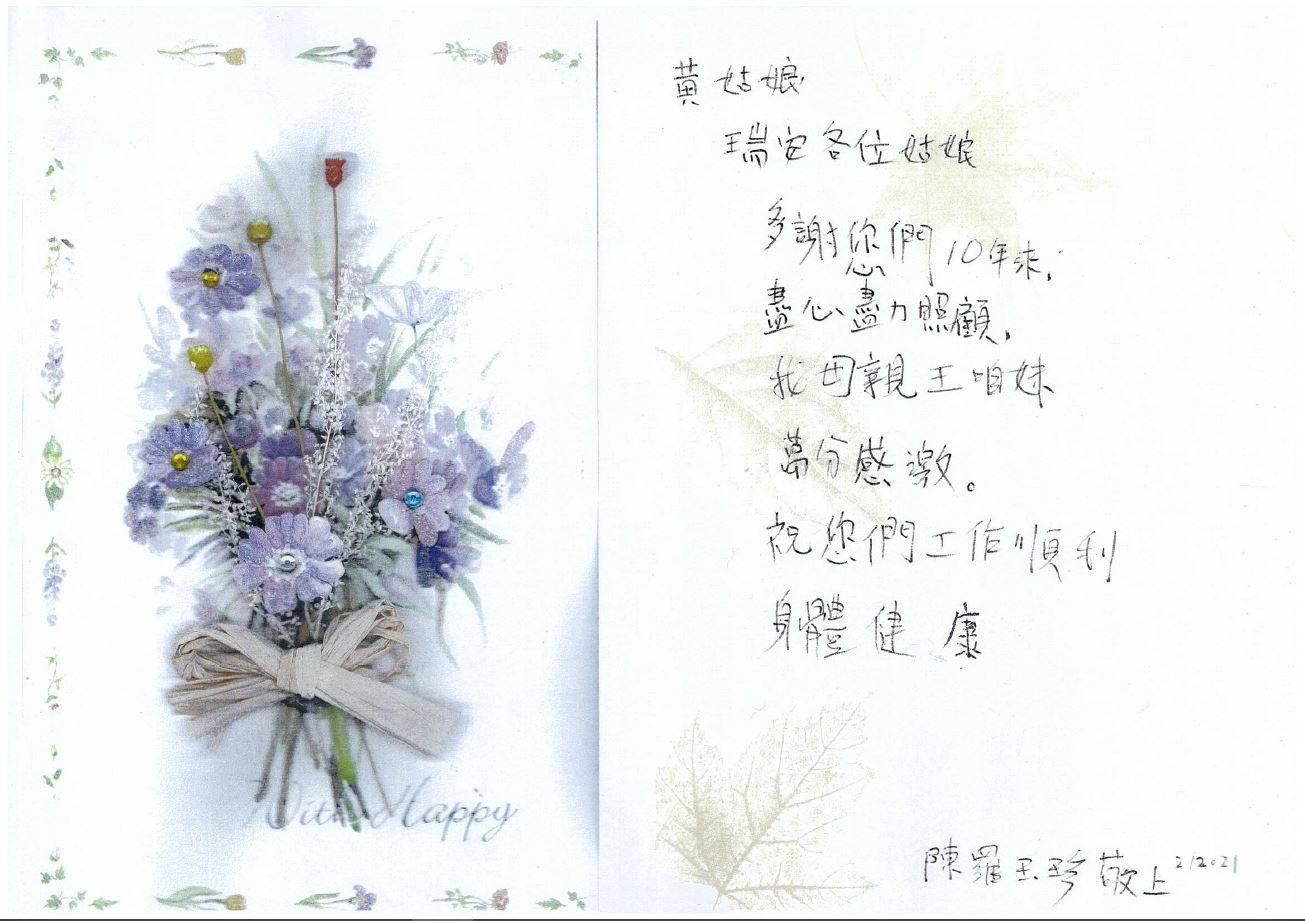 With Happy
黃姑娘
瑞安各位姑娘
多謝您們10年來,
盡心盡力照顧,
我母親王咱妹
萬分感激。
祝您們工作順利
身體健康
陳羅玉珍敬上 2/2021